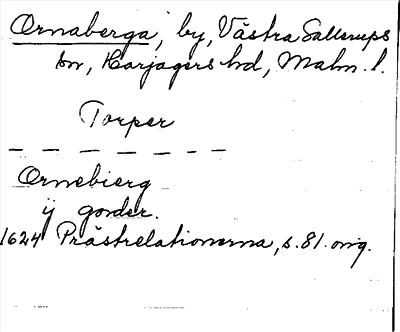 Ornaberga, by, Västra Sallerups
sn, Harjagers hd, Malm. l.
Torper
Ornebierg
ij gorder.
1624 Prästrelationerna, s. 81. orig.